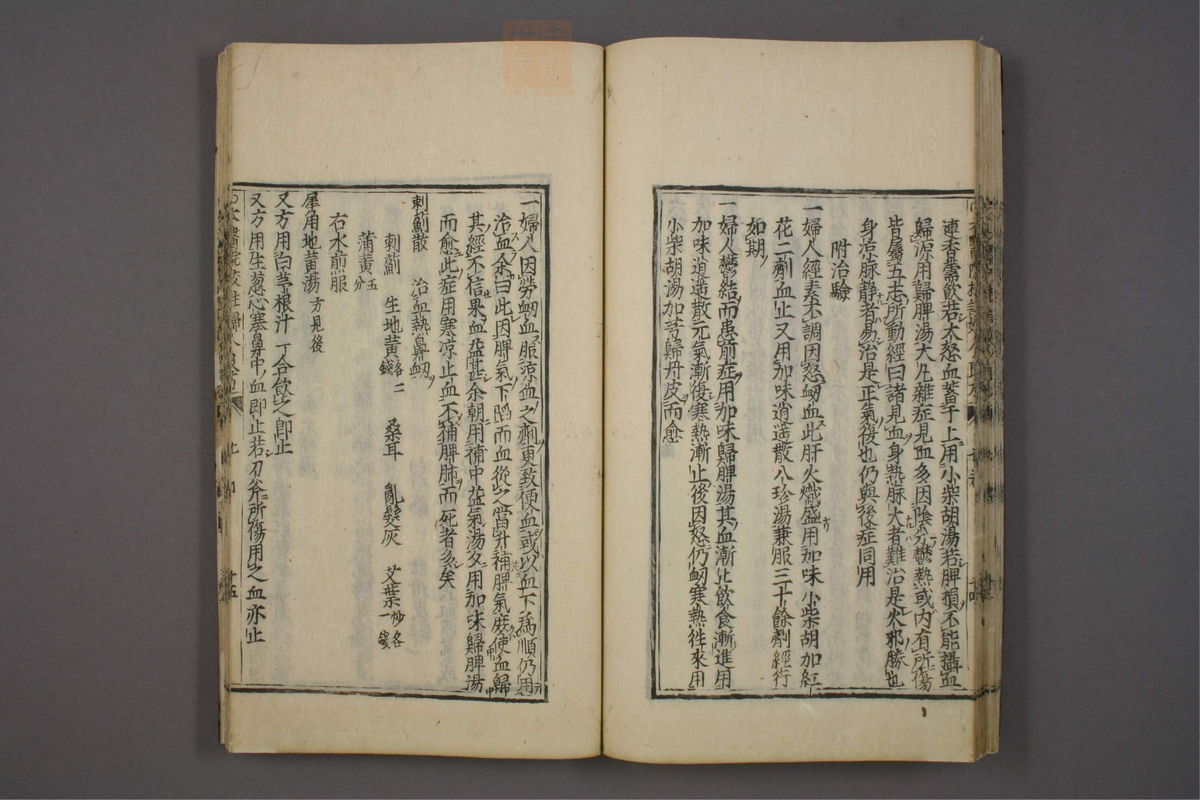 連香薷飲若大怒血蓄于上用小柴胡湯若脾損不能攝血
歸源用歸脾湯大凡雜症見血多因陰分鬱熱或内有所傷
皆屬五志所動經曰諸見血身熱脉大者難治是火邪勝也
身凉脉静者易治是正氣復也仍與後症同用
附治驗
一婦人經素不調因怒衂血此肝火熾盛用加味小柴胡加紅
花二劑血止又用加味逍遥散八珍湯兼服三十餘劑經行
如期
一婦人鬱結而患前症用加味歸脾湯其血漸止飲食漸進用
加味逍遥散元氣漸復寒熱漸止後因怒仍衂寒熱徃來用
小柴胡湯加芎歸丹皮而愈
一婦人因勞衂血服凉血之劑更致便血或以血下爲順仍用
治血余曰此因脾氣下陷而血從之當升補脾氣庶使血歸
其經不信果血益甚余朝用補中益氣湯夕用加味歸脾湯
而愈此症用寒凉止血不補脾肺而死者多矣
刺薊散 治血熱鼻衂
刺薊 生地黄各二錢 桑耳 亂髮灰 艾葉炒各一錢
蒲黄五分
右水煎服
犀角地黄湯方見後
又方用白茅根汁一合飲之即止
又方用生葱心塞鼻中血即止若刀斧所傷用之血亦止